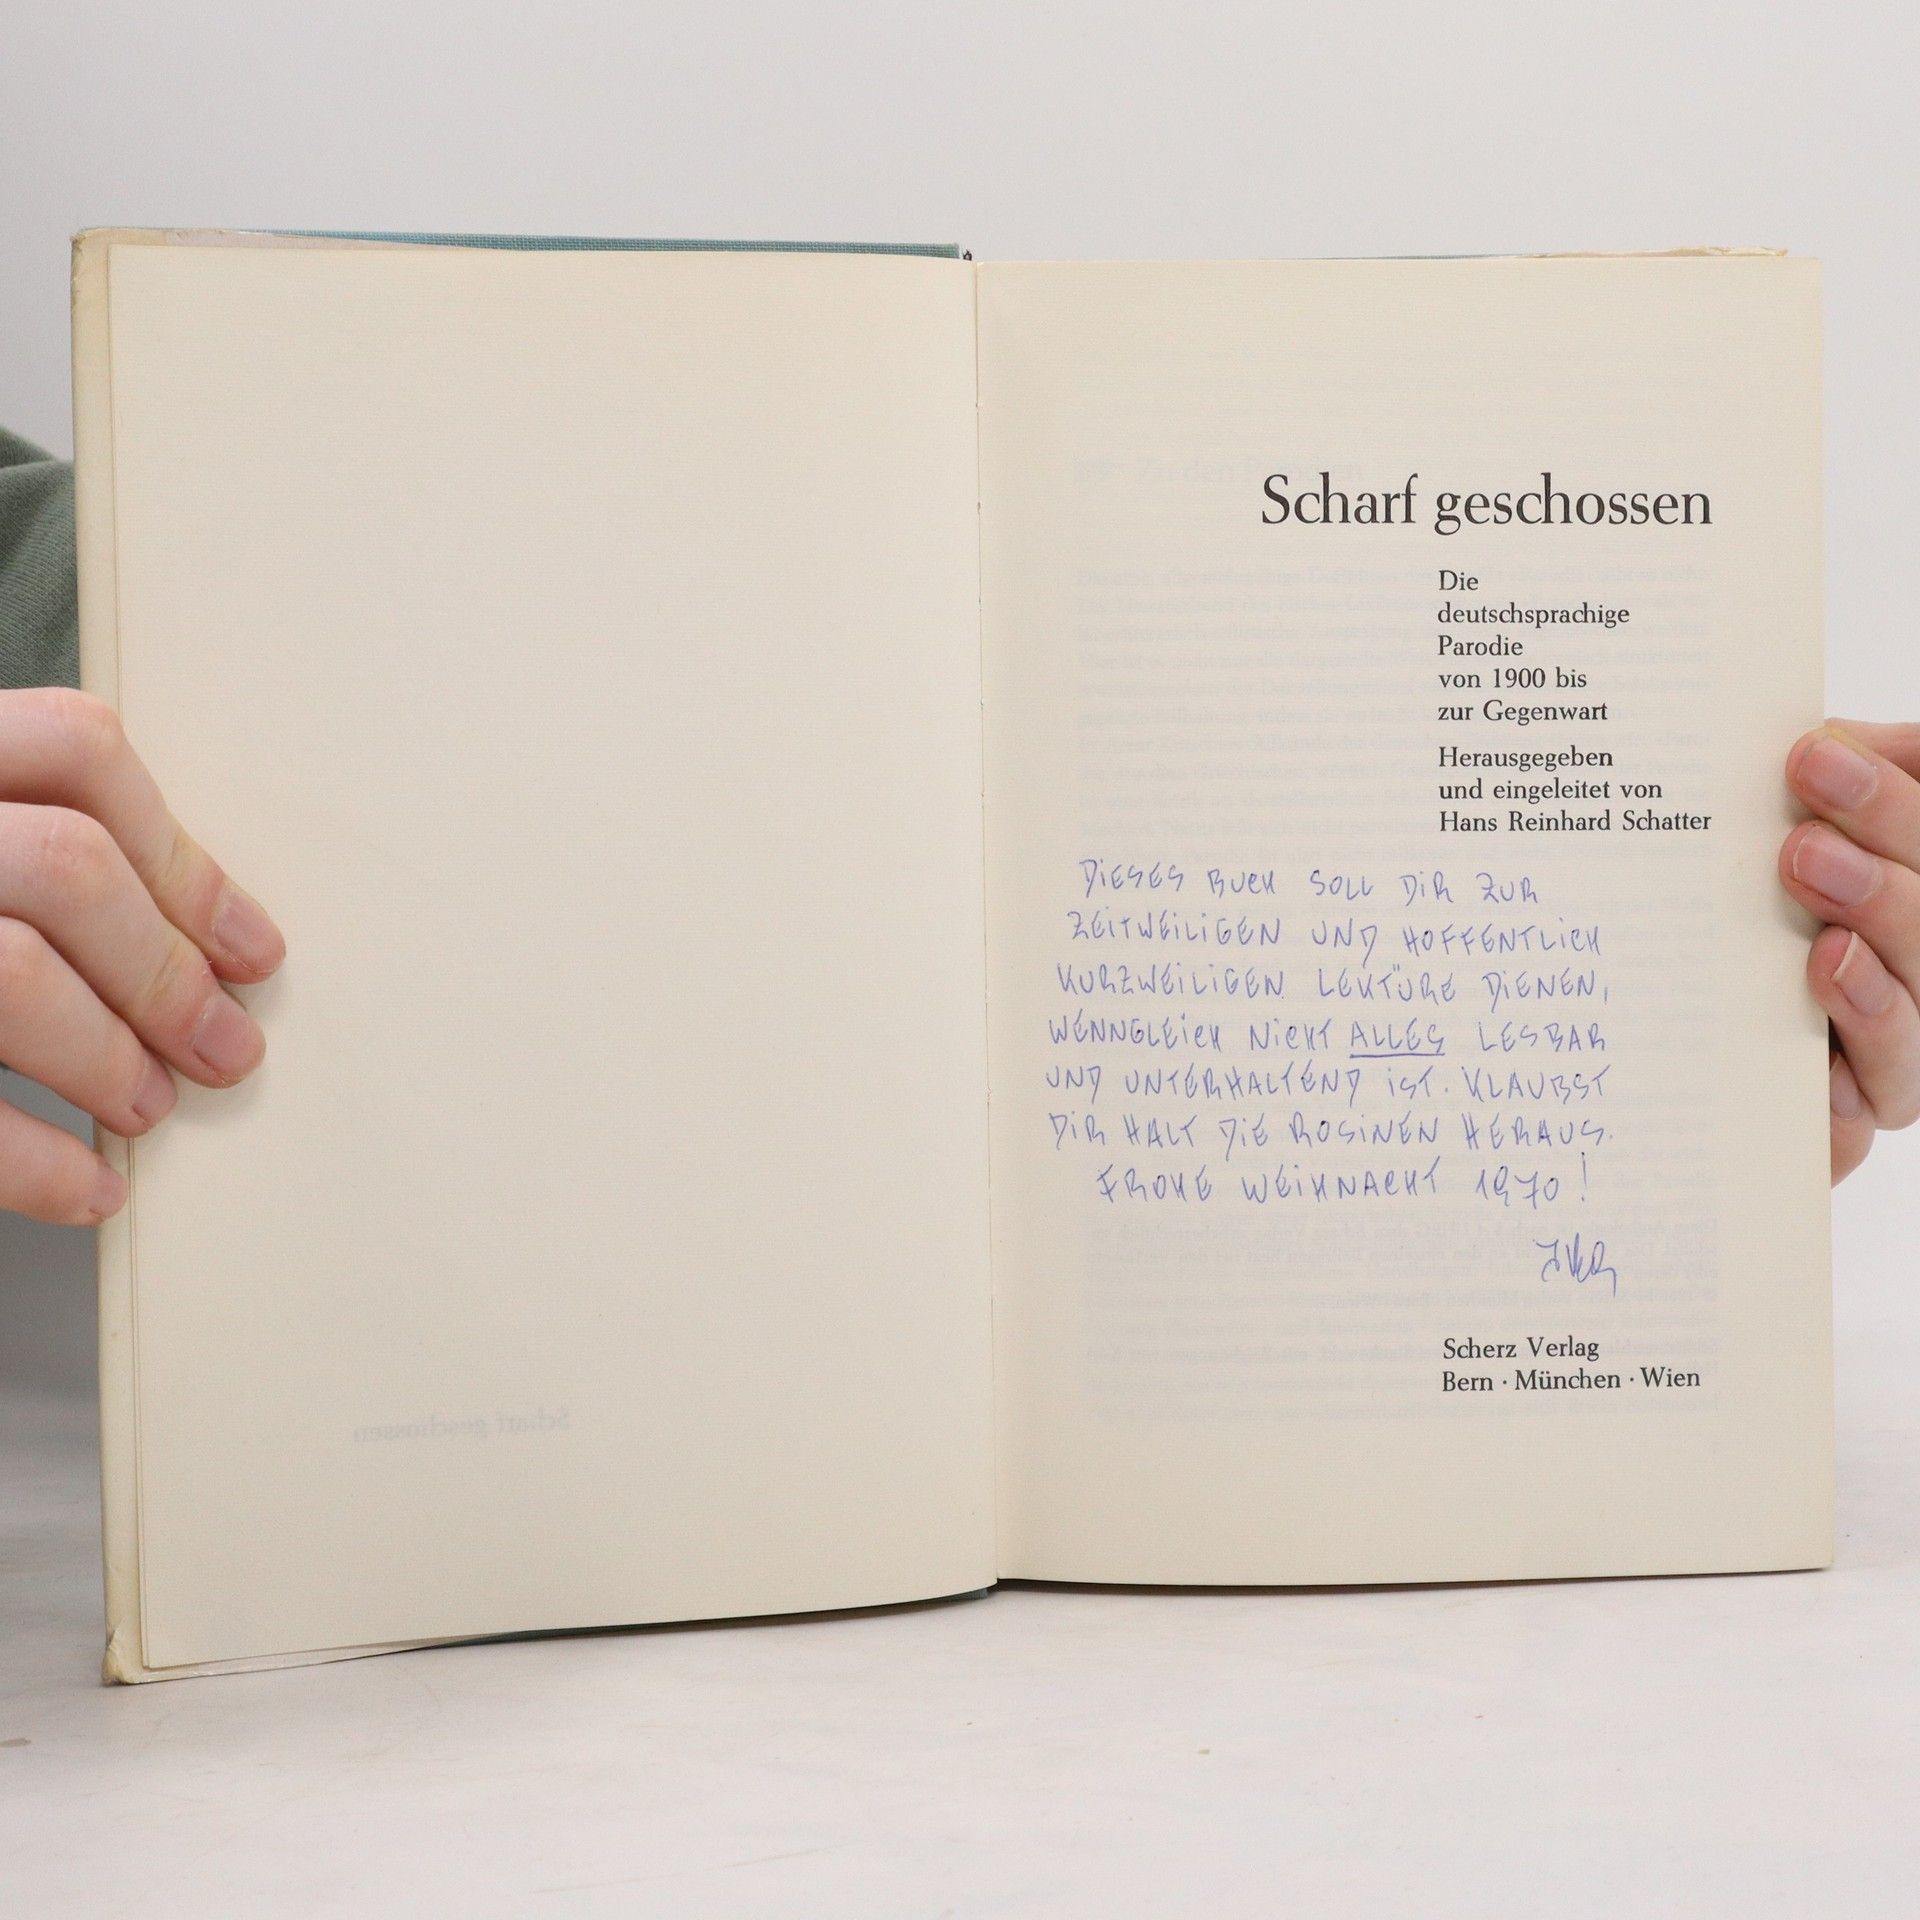 Scharf geschossen
Die
deutschsprachige
Parodie
von 1900 bis
zur Gegenwart
Herausgegeben
und eingeleitet von
Hans Reinhard Schatter
DIESES BUCH SOLL DIR ZUR
ZEITWEILIGEN UND HOFFENTLICH
KURZWEILIGEN LEKTÜRE DIENEN,
WENNGLEICH NICHT ALLES LESBAR
UND UNTERHALTEND IST. KLAUBST
DIR HALT DIE ROSINEN HERAUS.
FROHE WEIHNACHT 1970!
Scherz Verlag
Bern · München · Wien